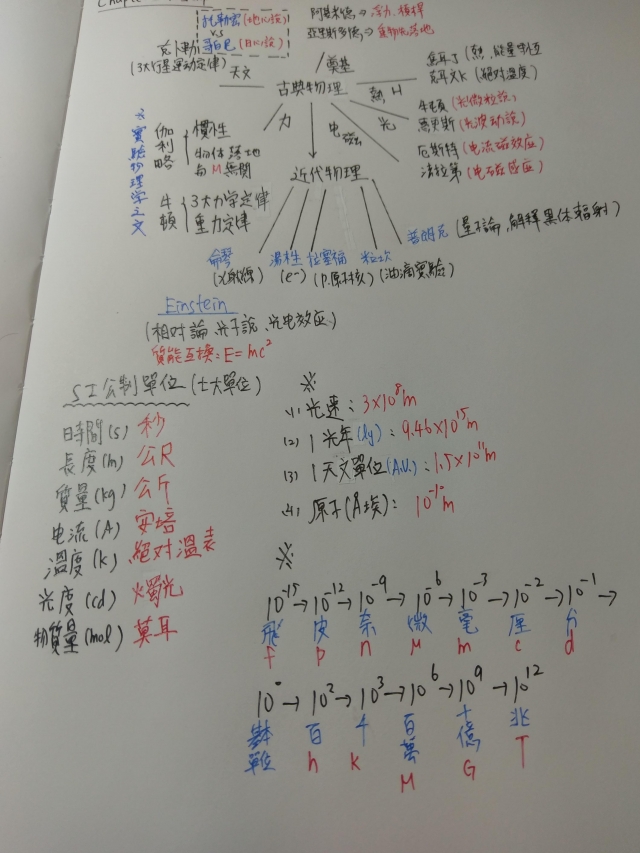 托勒密(地心說)
v.s
哥白尼(日心說)
阿基米德→浮力、槓桿
亞里斯多德→重物先落地
克卜勒
(3大行星運動定律)
天文
奠基
古典物理
熱 H
力
电磁
光
焦耳J(熱,能量单位
克耳文K(絕對溫度)
牛頓(光微粒說)
惠更斯(光波动說)
厄斯特(电流磁效应)
法拉第(电磁感应)
☆實驗物理学之父
伽利略
慣性
物体落地
与M無関
牛頓
3大力学定律
重力定律
近代物理
侖琴
(X射線)
湯姆生
(e⁻)
拉塞福
(p.原子核)
密立坎
(油滴實驗)
普朗克(量子論,解釋黑体輻射)
Einstein
(相对論、光子說、光电效应)
質能互換:E=mc²
SI公制單位(七大單位)
時間(s) 秒
長度(m) 公尺
質量(kg) 公斤
电流(A) 安培
溫度(k) 絕对溫表
光度(cd) 燭光
物質量(mol) 莫耳
※
(1)光速:3×10⁸m
(2)1光年(ly):9.46×10¹⁵m
(3)1天文單位(A.U.):1.5×10¹¹m
(4)原子(Å埃):10⁻¹⁰m
※
10⁻¹⁵→10⁻¹²→10⁻⁹→10⁻⁶→10⁻³→10⁻²→10⁻¹→
飛 皮 奈 微 毫 厘 分
f p n μ m c d
10⁰→10²→10³→10⁶→10⁹→10¹²
基本單位 百 千 百萬 十億 兆
h k M G T